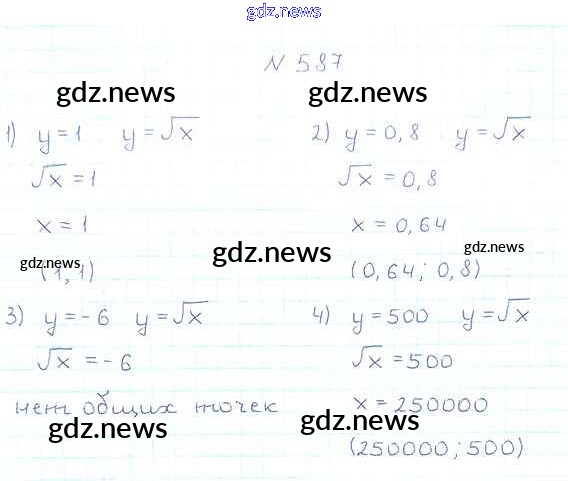 gdz.news
N 587
gdz.news gdz.news
1) y=1 y=√x
√x=1
x=1
(1,1)
gdz.news
2) y=0,8 y=√x
√x=0,8
x=0,64
gdz.news
gdz.news
(0,64; 0,8)
3) y=-6 y=√x
√x=-6
нет общих точек
gdz.news
4) y=500 y=√x
√x=500
x=250000
gdz.news
(250000; 500)